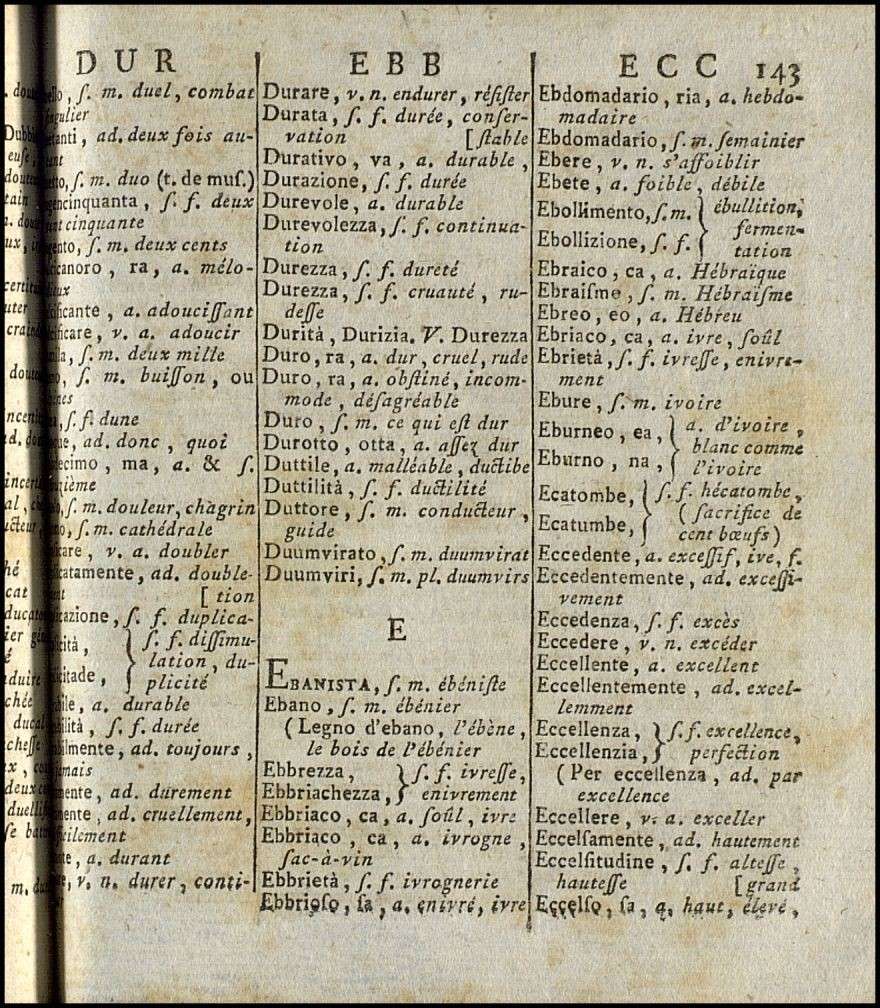 DUR
EBB
ECC 143
ſ. m. duel, combat
ad. deux fois au-
ſ. m. duo (t. de muſ.)
ſ. f. deux
cinquante
ſ. m. deux cents
ra, a. mélo-
a. adouciſſant
v. a. adoucir
ſ. m. deux mille
ſ. m. buiſſon, ou
ſ. f. dune
ad. donc, quoi
ma, a. & ſ.
ſ. m. douleur, chagrin
ſ. m. cathédrale
v. a. doubler
ad. double-
[tion
ſ. f. duplica-
ſ. f. diſſimu-
lation, du-
plicité
a. durable
ſ. f. durée
ad. toujours,
ad. durement
ad. cruellement,
a. durant
v. n. durer, conti-
Durare, v. n. endurer, réſiſter
Durata, ſ. f. durée, conſer-
vation [ſtable
Durativo, va, a. durable,
Durazione, ſ. f. durée
Durevole, a. durable
Durevolezza, ſ. f. continua-
tion
Durezza, ſ. f. dureté
Durezza, ſ. f. cruauté, ru-
deſſe
Durità, Durizia. V. Durezza
Duro, ra, a. dur, cruel, rude
Duro, ra, a. obſtiné, incom-
mode, déſagréable
Duro, ſ. m. ce qui eſt dur
Durotto, otta, a. aſſez dur
Duttile, a. malléable, ductibe
Duttilità, ſ. f. ductilité
Duttore, ſ. m. conducteur,
guide
Duumvirato, ſ. m. duumvirat
Duumviri, ſ. m. pl. duumvirs
E
EBANISTA, ſ. m. ébéniſte
Ebano, ſ. m. ébénier
(Legno d'ebano, l'ébène,
le bois de l'ébénier
Ebbrezza, } ſ. f. ivreſſe,
Ebbriachezza, } enivrement
Ebbriaco, ca, a. ſoûl, ivre
Ebbriaco, ca, a. ivrogne,
ſac-à-vin
Ebbrietà, ſ. f. ivrognerie
Ebbrioſo, ſa, a. enivré, ivre
Ebdomadario, ria, a. hebdo-
madaire
Ebdomadario, ſ. m. ſemainier
Ebere, v. n. s'affoiblir
Ebete, a. foible, débile
Ebollimento, ſ. m. } ébullition,
fermen-
Ebollizione, ſ. f. } tation
Ebraico, ca, a. Hébraïque
Ebraiſme, ſ. m. Hébraïſme
Ebreo, eo, a. Hébreu
Ebriaco, ca, a. ivre, ſoûl
Ebrietà, ſ. f. ivreſſe, enivre-
ment
Ebure, ſ. m. ivoire
Eburneo, ea, } a. d'ivoire,
blanc comme
Eburno, na, } l'ivoire
Ecatombe, } ſ. f. hécatombe,
(ſacrifice de
Ecatumbe, } cent bœufs)
Eccedente, a. exceſſif, ive, f.
Eccedentemente, ad. exceſſi-
vement
Eccedenza, ſ. f. excès
Eccedere, v. n. excéder
Eccellente, a. excellent
Eccellentemente, ad. excel-
lemment
Eccellenza, } ſ. f. excellence,
Eccellenzia, } perfection
(Per eccellenza, ad. par
excellence
Eccellere, v. a. exceller
Eccelſamente, ad. hautement
Eccelſitudine, ſ. f. alteſſe,
hauteſſe [grand
Eccelſo, ſa, a. haut, élevé,